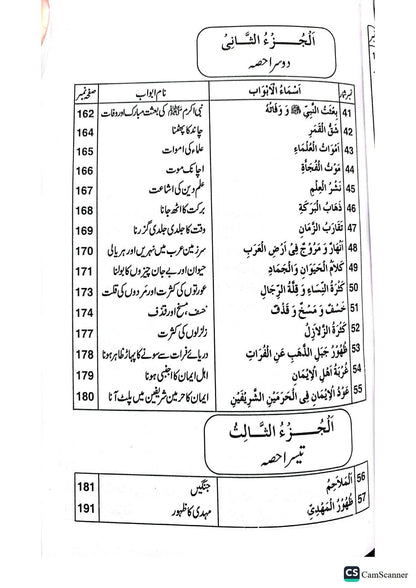 اَلْجُزْءُ الثَّانِیْ
دوسرا حصہ
نمبر شمار اَسْمَاءُ الْاَبْوَاب نام ابواب صفحہ نمبر
41 بِعْثَتُ النَّبِيِّ ﷺ وَ وَفَاتُهٗ نبی اکرم ﷺ کی بعثت مبارک اور وفات 162
42 شَقُّ الْقَمَرِ چاند کا پھٹنا 164
43 اَمْوَاتُ الْعُلَمَاءِ علماء کی اموات 165
44 مَوْتُ الْفَجَأَةِ اچانک موت 166
45 نَشْرُ الْعِلْمِ علم دین کی اشاعت 167
46 ذَهَابُ الْبَرَكَةِ برکت کا اٹھ جانا 168
47 تَقَارُبُ الزَّمَانِ وقت کا جلدی جلدی گزرنا 169
48 اَنْهَارٌ وَ مُرُوْجٌ فِىْ اَرْضِ الْعَرَبِ سرزمین عرب میں نہریں اور ہریالی 170
49 كَلَامُ الْحَيَوَانِ وَالْجَمَادِ حیوان اور بے جان چیزوں کا بولنا 171
50 كَثْرَةُ النِّسَاءِ وَ قِلَّةُ الرِّجَالِ عورتوں کی کثرت اور مَردوں کی قلت 173
51 خَسْفٌ وَ مَسْخٌ وَ قَذْفٌ خسف، مسخ اور قذف 174
52 كَثْرَةُ الزَّلَازِلِ زلزلوں کی کثرت 177
53 ظُهُوْرُ جَبَلِ الذَّهَبِ عَنِ الْفُرَاتِ دریائے فرات سے سونے کا پہاڑ ظاہر ہونا 178
54 غُرْبَةُ اَهْلِ الْاِيْمَانِ اہل ایمان کا اجنبی ہونا 179
55 عَوْدُ الْاِيْمَانِ فِى الْحَرَمَيْنِ الشَّرِيْفَيْنِ ایمان کا حرمین شریفین میں پلٹ آنا 180
اَلْجُزْءُ الثَّالِثُ
تیسرا حصہ
56 اَلْمَلَاحِمُ جنگیں 181
57 ظُهُوْرُ الْمَهْدِيِّ مہدی کا ظہور 191
CS CamScanner